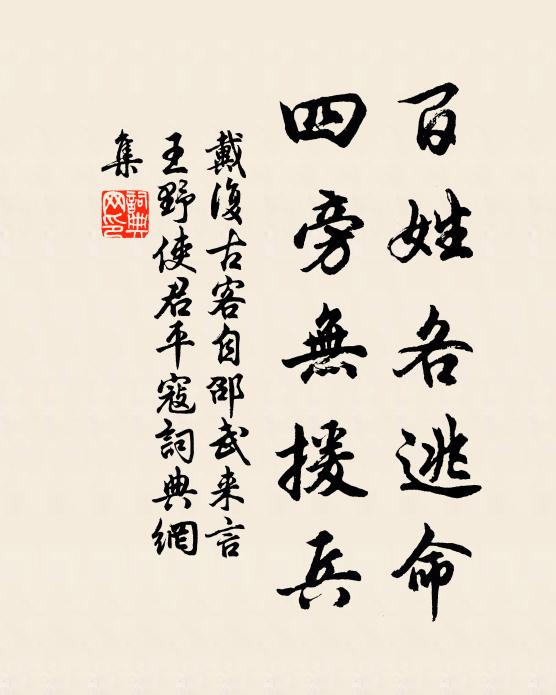 百姓各逃命
四旁無援兵
戴復古客自邵武来言
王野使君平寇詞典網
集
詞典
网印